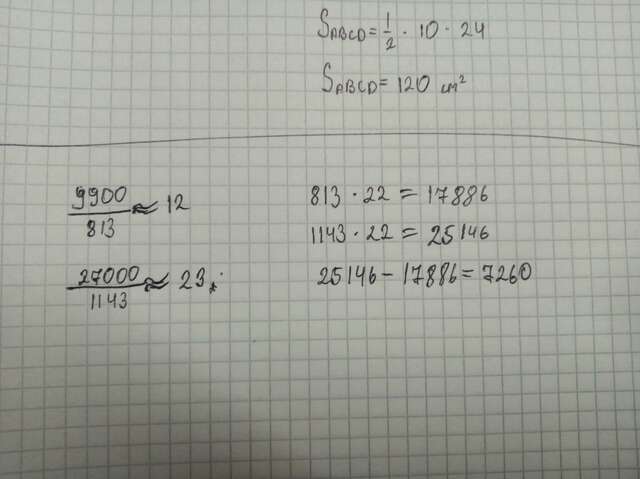 S_ABCD = 1/2 · 10 · 24
S_ABCD = 120 cm²
9900/813 ≈ 12
27000/1143 ≈ 23.
813 · 22 = 17886
1143 · 22 = 25146
25146 - 17886 = 7260